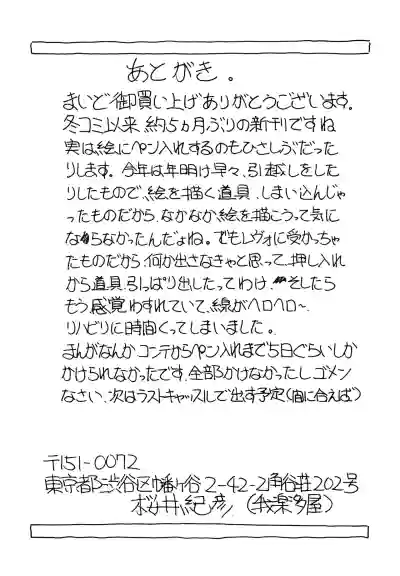 あとがき。
まいど御買い上げありがとうございます。
冬コミ以来、約5ヵ月ぶりの新刊ですね
実は絵にペン入れするのもひさしぶだった
りします。今年は年明け早々、引越しをした
りしたもので、絵を描く道具、しまい込んじゃ
ったものだから、なかなか絵を描こうって気に
ならなかったんだよね。でもレヴォに受かっちゃ
たものだから何か出さなきゃと思って、押し入れ
から道具、引っぱり出したってわけ、そしたら
もう感覚わすれていて、線がヘロヘロ〜
リハビリに時間くってしまいました。
まんがなんかコンテからペン入れまで5日ぐらいしか
かけられなかったです、全部かけなかったし、ゴメン
なさい、次はラストキャッスルで出す予定(間に合えば)
〒151-0072
東京都渋谷区幡ヶ谷2-42-2角谷荘202号
桜井紀彦(我楽多屋)